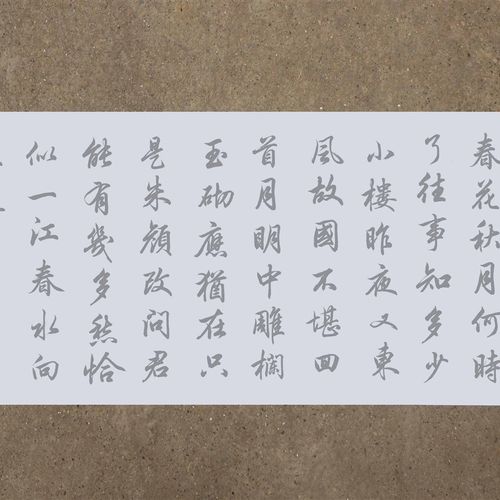 春花秋月何時
了往事知多少
小樓昨夜又東
風故國不堪回
首月明中雕欄
玉砌應猶在只
是朱顏改問君
能有幾多愁恰
似一江春水向